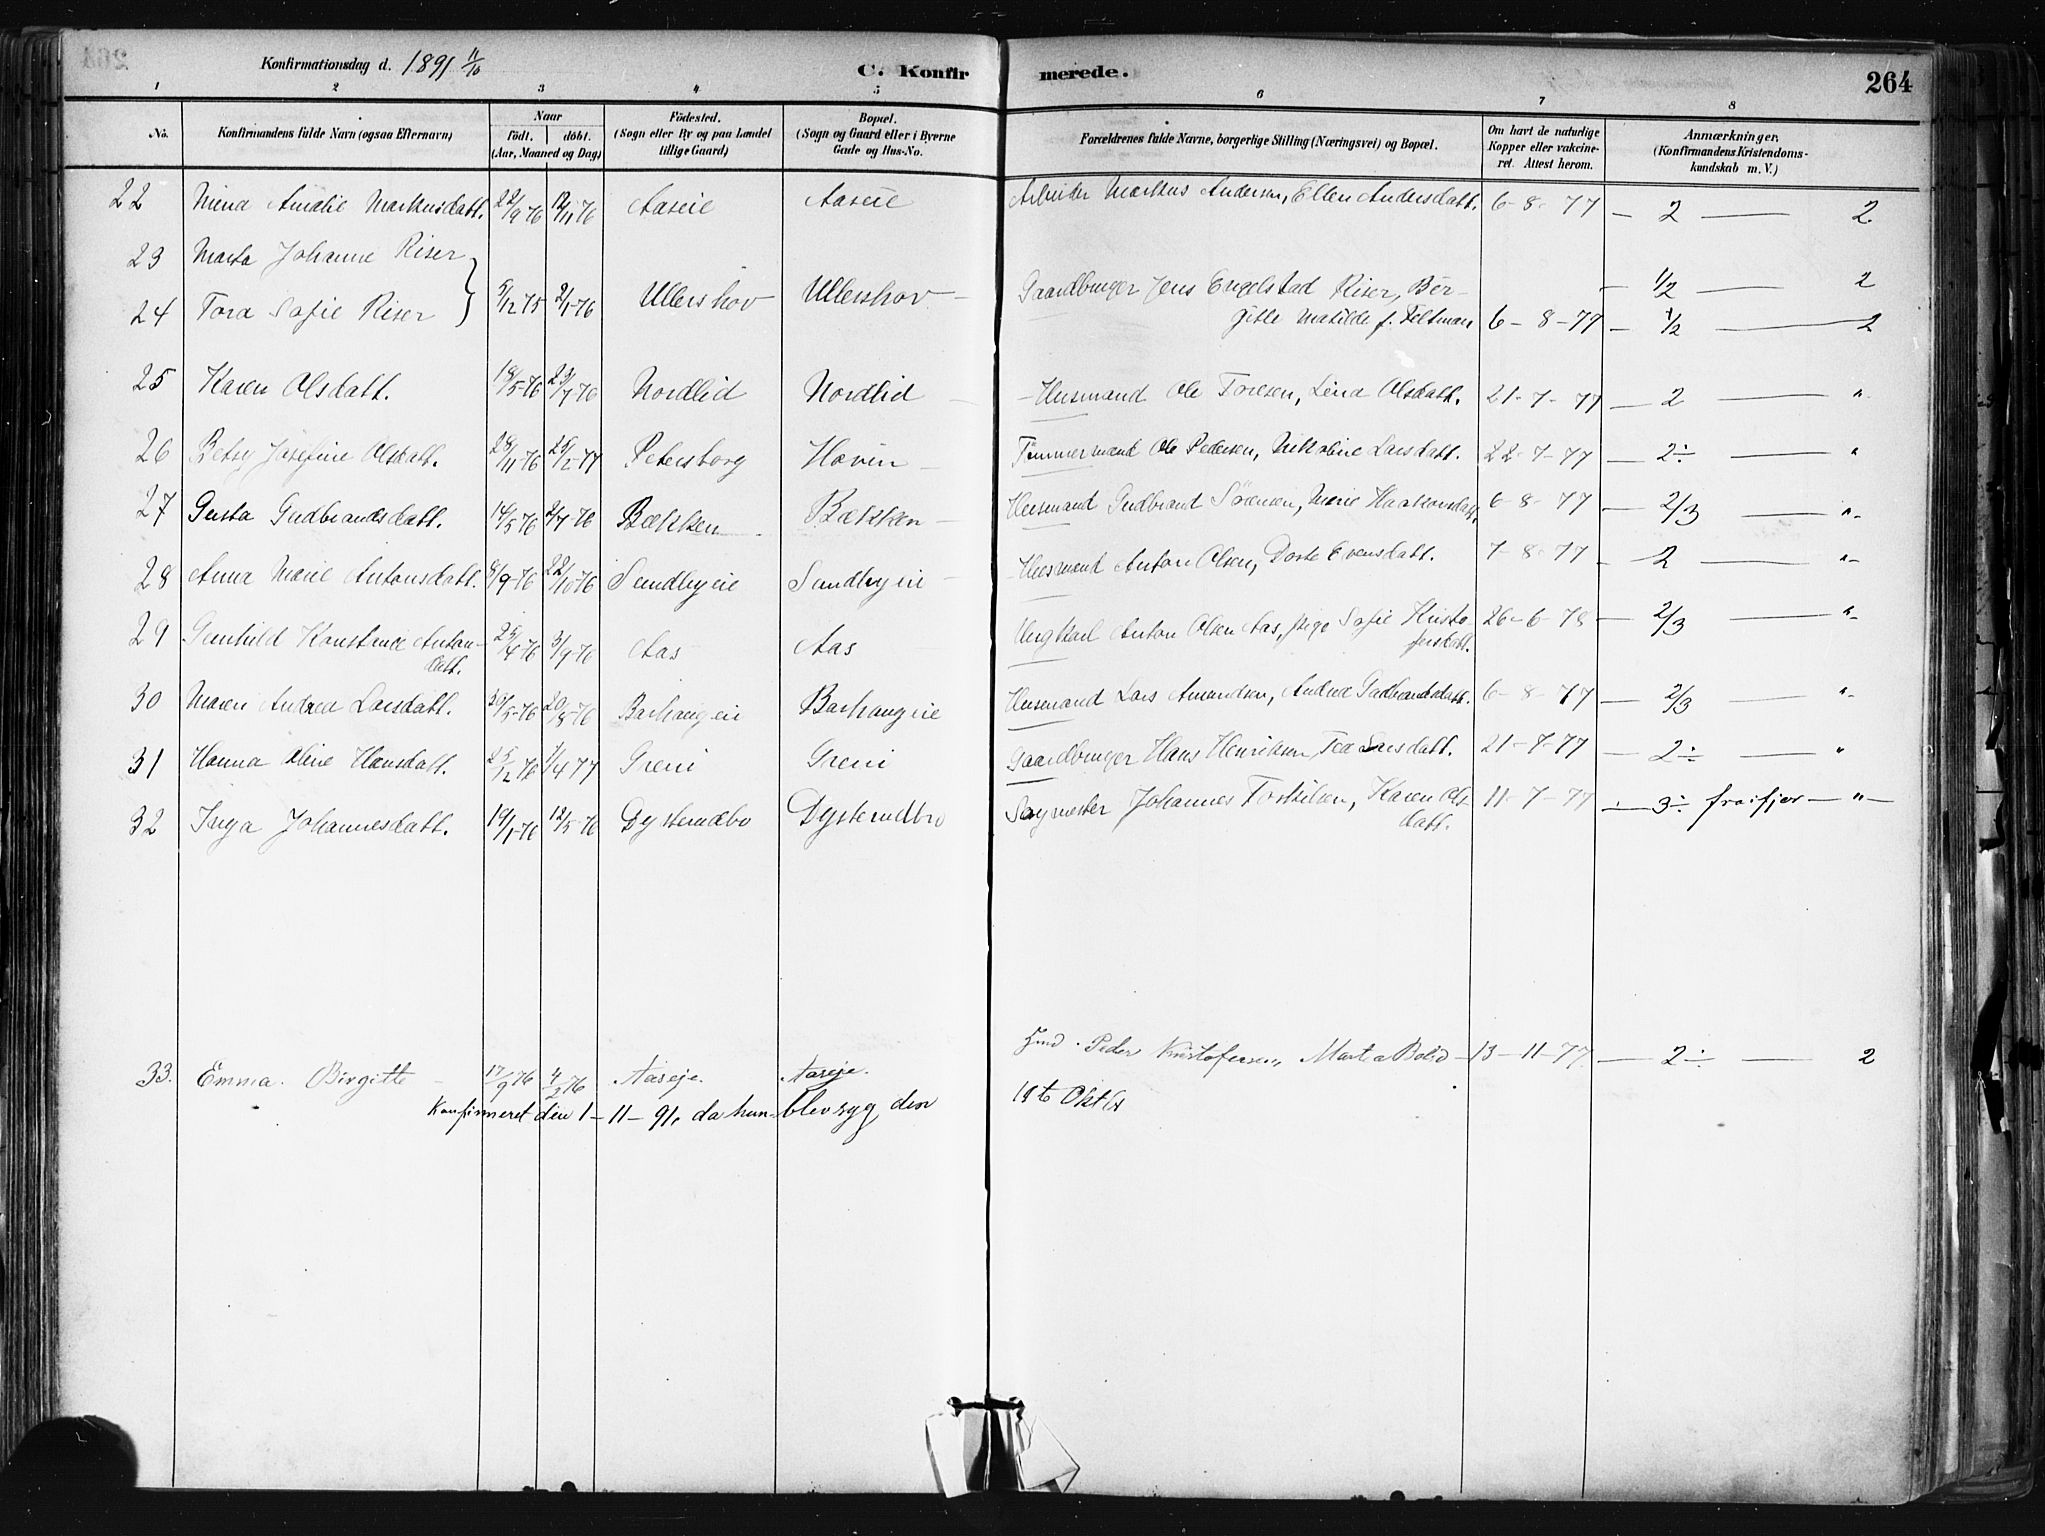 Konfirmationsdag d. 1891 11/10 C. Konfirmerede. 264
1 2 3 4 5 6 7 8
No. Konfirmandens fulde Navn (ogsaa Efternavn) Naar födt. döbt. (Aar, Maaned og Dag) Födested. (Sogn eller By og paa Landet tillige Gaard) Bopæl. (Sogn og Gaard eller i Byerne Gade og Hus-No. Forældrenes fulde Navne, borgerlige Stilling (Næringsvei) og Bopæl. Om havt de naturlige Kopper eller vakcineret. Attest herom. Anmærkninger, (Konfirmandens Kristendomskundskab m. V.)
22 Mina Amalie Markusdatt. 22/9 76 12/11 76 Aaseie Aaseie Arbeider Markus Andersen, Ellen Andersdatt. 6-8-77 — 2 — 2
23 Marta Johanne Riser } 5/12 75 2/1-76 Ullershov Ullershov Gaardbruger Jens Engelstad Riser, Ber- — 1/2 — 2
24 Tora Sofie Riser gitte Matilde f. Feltman 6-8-77 — 1/2 — 2
25 Karen Olsdatt. 18/5-76 23/7-76 Nordlid Nordlid Husmand Ole Toresen, Lina Olsdatt. 21-7-77 — 2 — "
26 Betsy Josefine Olsdatt. 28/11-76 25/2-77 Petersborg Hovin Tømmermand Ole Pedersen, Nikoline Larsdatt. 22-7-77 — 2÷ — "
27 Gusta Gudbrandsdatt. 14/5 76 2/7 76 Bækken Bækken Husmand Gudbrand Sørensen, Marie Haakonsdatt. 6-8-77 — 2/3 — "
28 Anna Marie Antonsdatt. 8/9-76 22/10-76 Sundbyeie Sundbyeie Husmand Anton Olsen, Dorte Evensdatt. 7-8-77 — 2 — "
29 Gunhild Konstance Anton- 25/4 76 3/9-76 Aas Aas Ungkarl Anton Olsen Aas, pige Sofie Kristo 26-6-78 — 2/3 — "
datt. fersdatt.
30 Maren Andrea Larsdatt. 30/5-76 20/8-76 Barhaugeie Barhaugeie Husmand Lars Amundsen, Andrea Gudbrandsdatt. 6-8-77 — 2/3 — "
31 Hanna Oline Hansdatt. 25/12 76 1/4 77 Greni Greni Gaardbruger Hans Henriksen, Tea Larsdatt. 21-7-77 — 2÷ — "
32 Inga Johannesdatt. 19/1-76 12/5-76 Dysterudbro Dysterudbro Sagmester Johannes Torkilsen, Karen Ols 11-7-77 — 3÷ fraifjor — " —
datt.
33. Emma Birgitte 17/9 76 4/2 76 Aaseje. Aaseje. Peder Kristofersen, Marta Bolid 13-11-77 — 2÷ — 2
Konfirmeret den 1-11-91, da hun blev syg den 11te Oktbr